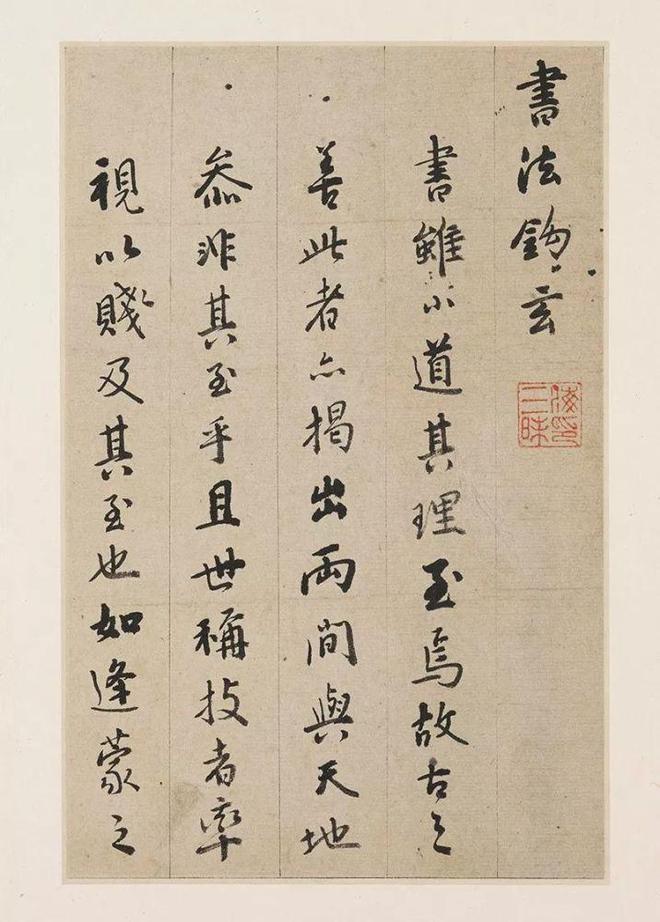 書法鈎玄
書雖小道其理至焉故古之
善此者亦揭出兩間與天地
叅非其至乎且世稱技者率
視以賤及其至也如逢蒙之